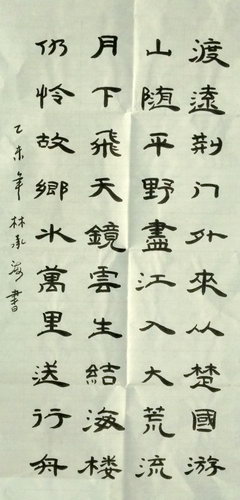 渡遠荆门外來从楚國游
山随平野盡江入大荒流
月下飛天鏡雲生結海楼
仍怜故鄉水萬里送行舟
乙未年林承海書